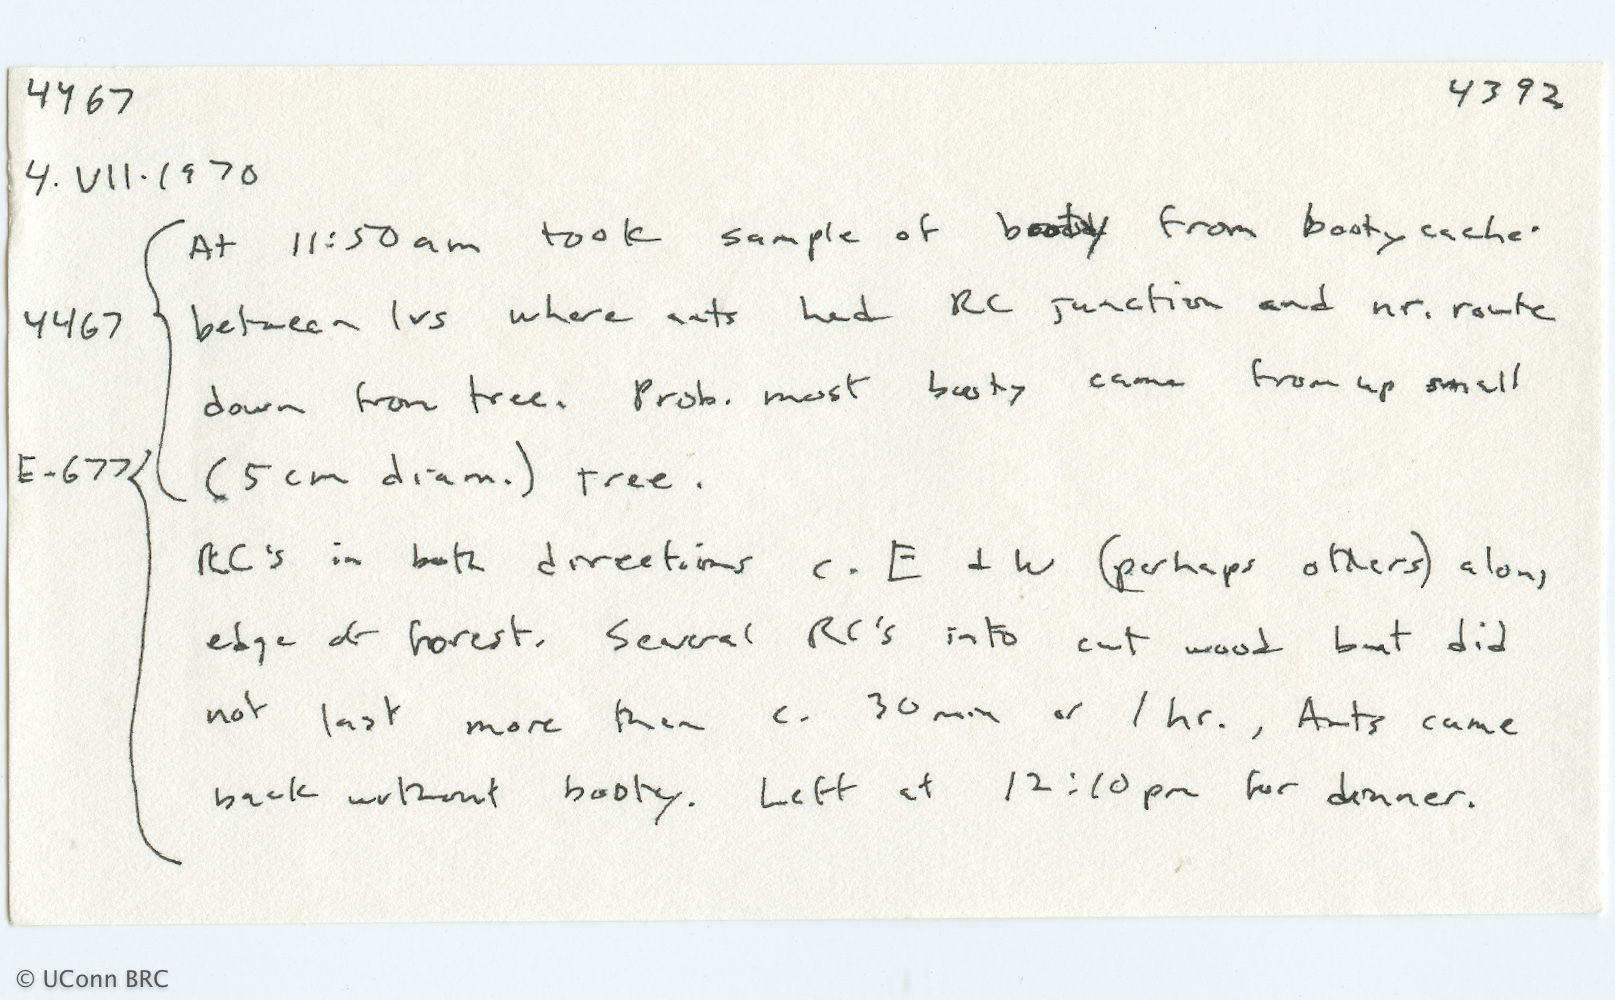 4467 4392
4. VII. 1970
At 11:50 am took sample of booty from booty cache.
4467 between lvs where ants had RC junction and nr. route
down from tree. Prob. most booty came from up small
E-677 (5 cm diam.) tree.
RC's in both directions c. E + W (perhaps others) along
edge of forest. Several RC's into cut wood but did
not last more than c. 30 min or 1 hr., Ants came
back without booty. Left at 12:10 pm for dinner.
© UConn BRC